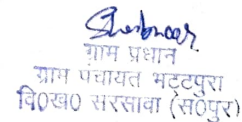 ग्राम प्रधान
ग्राम पंचायत भट्टपुरा
वि०ख० सरसावा (स०पुर)